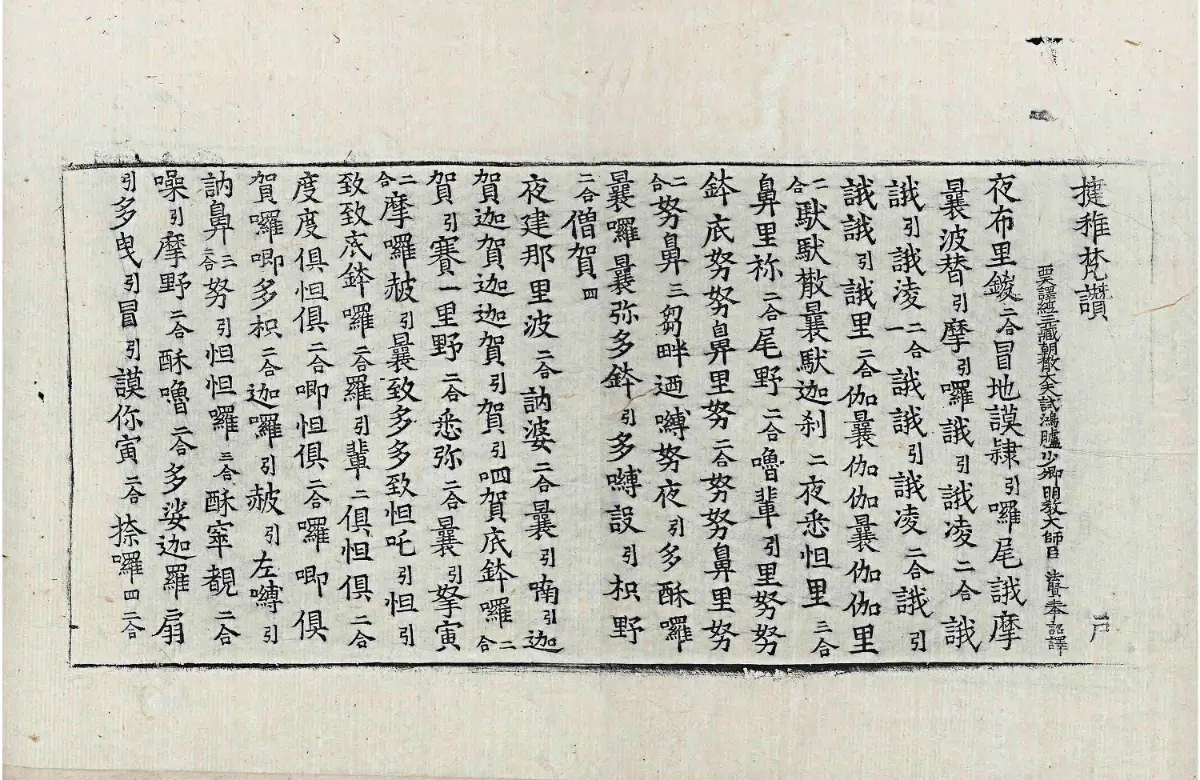 揵稚梵讃 戶
西天譯經三藏朝散大夫試鴻臚少卿明教大師臣 法賢奉 詔譯
夜布里鋑二合冒地謨隷引囉尾誐摩
曩波替引摩引囉誐引誐凌二合誐
誐引誐凌二合一誐誐引誐凌二合誐引
誐誐引誐里二合伽曩伽伽曩伽伽里
二合䭾䭾散曩䭾迦刹二夜悉怛里三合
鼻里祢二合尾野二合嚕輩引里努努
鉢底努努鼻里努二合努努鼻里努
二合努鼻三芻畔迺嚩努夜引多酥囉
曩囉曩弥多鉢引多嚩設引枳野
二合僧賀四
夜建那里波二合訥婆二合曩引喃引迦
賀迦賀迦迦賀引賀引呬賀底鉢囉二合
賀引賽一里野二合悉弥二合曩引拏寅
二合摩囉赦引曩致多多致怛吒引怛引
致致底鉢囉二合羅引輩二俱怛俱二合
度度俱怛俱二合唧怛俱二合囉唧俱
賀囉唧多枳二合迦囉引赦引左嚩引
訥鼻二合努引怛怛囉三合酥窣覩二合
噪引摩野二合酥嚕二合多娑迦羅扇
引多曳引冒引謨你寅二合捺囉四二合